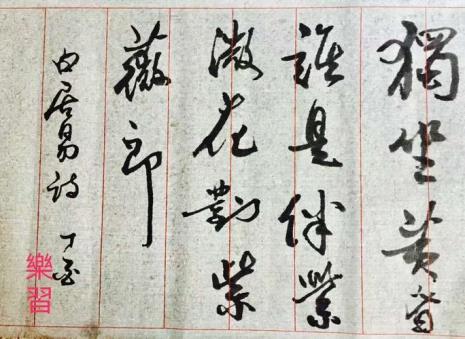 獨坐黄昏
誰是伴紫
微花對紫
薇郎
白居易詩 丁
樂習